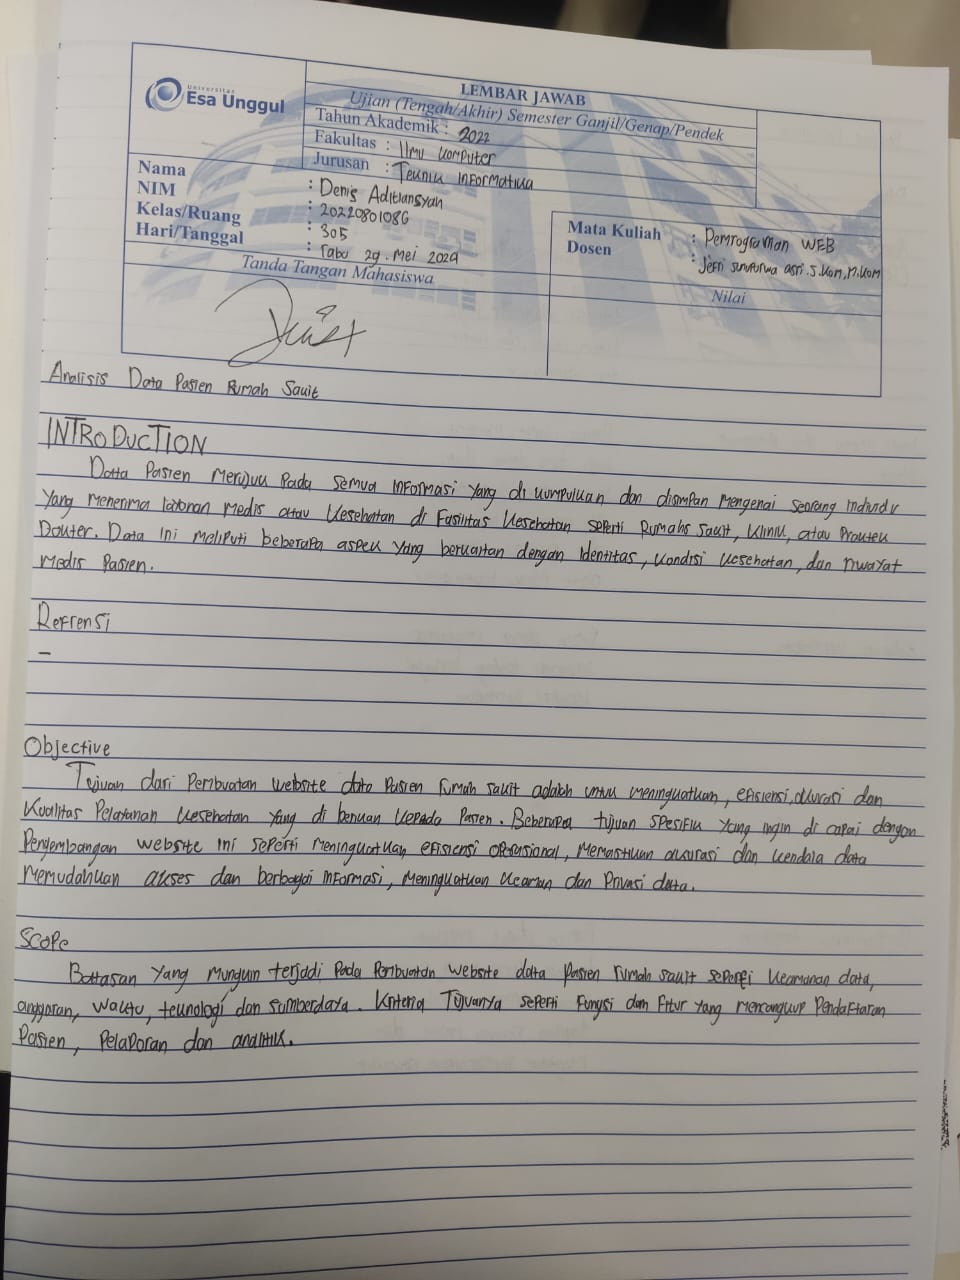 Universitas
Esa Unggul
LEMBAR JAWAB
Ujian (Tengah/Akhir) Semester Ganjil/Genap/Pendek
Tahun Akademik : 2022
Fakultas : Ilmu Komputer
Jurusan : Teknik Informatika
Nama : Denis Aditiansyah
NIM : 20220801086
Kelas/Ruang : 305
Hari/Tanggal : Rabu 29. Mei 2024
Mata Kuliah : Pemrograman WEB
Dosen : Jefri sunupurwa asri. S.Kom, M.Kom
Tanda Tangan Mahasiswa
Nilai
Analisis Data Pasien Rumah Sakit
INTRODUCTION
Data Pasien Merujuk Pada Semua Informasi Yang di kumpulkan dan disimpan Mengenai Seorang Individu
Yang Menerima layanan Medis atau kesehatan di Fasilitas kesehatan seperti Rumahs sakit, Klinik, atau Praktek
Dokter. Data ini Meliputi beberapa aspek Yang berkaitan dengan Identitas, kondisi kesehatan, dan riwayat
Medis Pasien.
Refrensi
-
Objective
Tujuan dari Pembuatan website data Pasien rumah sakit adalah untuk meningkatkan, efisiensi, akurasi dan
Kualitas Pelayanan kesehatan Yang di berikan kepada Pasien. Beberapa tujuan spesifik yang ingin di capai dengan
Pengembangan website ini seperti Meningkatkan efisiensi operasional, Memastikan akurasi dan kendala data
Memudahkan akses dan berbagi Informasi, Meningkatkan keaman dan Privasi data.
Scope
Batasan Yang Mungkin terjadi Pada Pembuatan website data pasien rumah sakit seperti keamanan data,
anggaran, waktu, teknologi dan sumberdaya. Kriteria Tujuanya seperti Fungsi dam Fitur yang mencangkup Pendaftaran
Pasien, Pelaporan dan analitik.